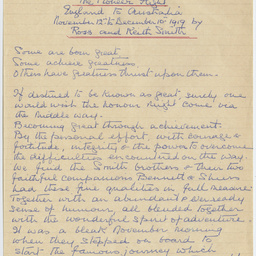 The Pioneer Flight
England to Australia
November 12 to December 10th 1919 by
Ross and Keith Smith
Some are born great
Some achieve greatness
Others have greatness thrust upon them.
If destined to be known as great, surely one
would wish the honour might come via
the middle way.
Becoming great through achievement.
By the personal effort, with courage &
fortitude, integrity & the power to overcome
the difficulties encountered on the way.
We find the Smith brothers & their two
faithful companions Bennett & Shiers
had these fine qualities in full measure
Together with an abundant & ever ready
sense of humour, all blended together
with the wonderful spirit of adventure.
It was a bleak November morning
when they stepped on board to
start the famous journey which